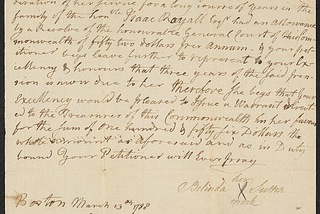 ration of her service for a long course of years in the
family of the honble Isaac Royall Esqr had an Allowance
by a Resolve of the honourable General Court of this Com
monwealth of fifty two dollars per Annum. & your peti
tioner begs leave further to represent to your Ex
cellency & honours that three years of the said pen
sion is now due to her therefore she begs that your
Excellency would be pleased to issue a Warrant direct
ed to the Treasurer of this Commonwealth in her favour
for the sum of One hundred & fifty six Dollars the
whole amount as aforesaid and as in Duty
bound Your Petitioner will ever pray
her
Belinda X Sutton
mark
Boston March 13th 1788